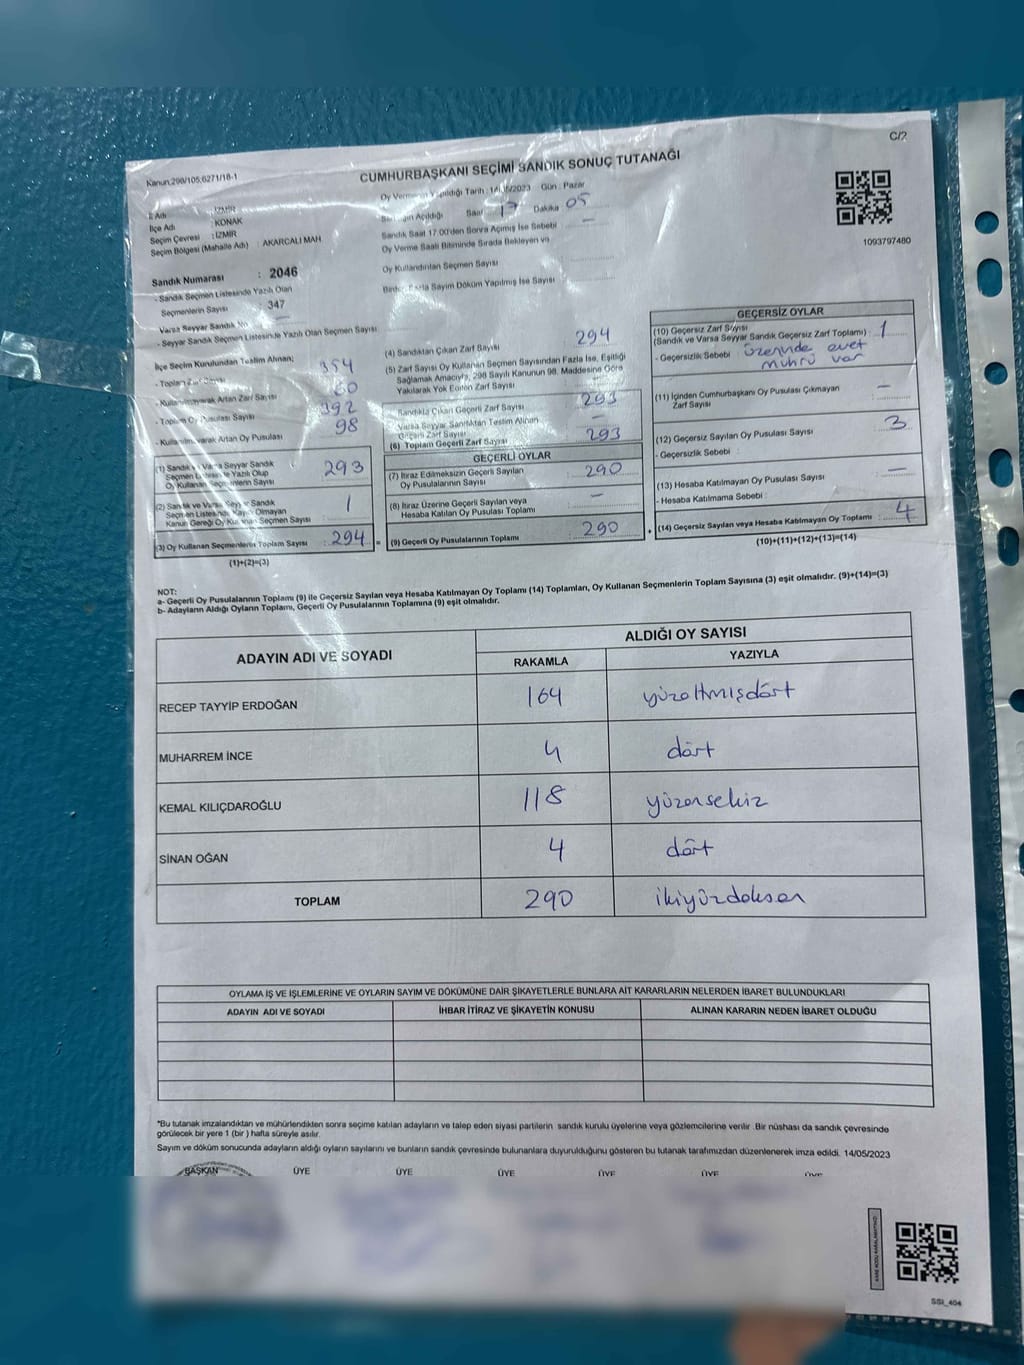 C/2
Kanun:298/105;6271/18-1
CUMHURBAŞKANI SEÇİMİ SANDIK SONUÇ TUTANAĞI
İl Adı : İZMİR
İlçe Adı : KONAK
Seçim Çevresi : İZMİR
Seçim Bölgesi (Mahalle Adı) : AKARCALI MAH
Oy Vermenin Yapıldığı Tarih : 14/05/2023 Gün : Pazar
Sandığın Açıldığı Saat 17 Dakika 05
Sandık Saat 17.00'den Sonra Açılmış İse Sebebi –
Oy Verme Saati Bitiminde Sırada Bekleyen ve
Oy Kullandırılan Seçmen Sayısı
Birden Fazla Sayım Döküm Yapılmış İse Sayısı
1093797480
Sandık Numarası : 2046
- Sandık Seçmen Listesinde Yazılı Olan
Seçmenlerin Sayısı : 347
Varsa Seyyar Sandık No –
- Seyyar Sandık Seçmen Listesinde Yazılı Olan Seçmen Sayısı
İlçe Seçim Kurulundan Teslim Alınan;
- Toplam Zarf Sayısı 354
- Kullanılmayarak Artan Zarf Sayısı 60
- Toplam Oy Pusulası Sayısı 392
- Kullanılmayarak Artan Oy Pusulası 98
(1) Sandık ve Varsa Seyyar Sandık
Seçmen Listesinde Yazılı Olup
Oy Kullanan Seçmenlerin Sayısı : 293
(2) Sandık ve Varsa Seyyar Sandık
Seçmen Listesinde Kaydı Olmayan
Kanun Gereği Oy Kullanan Seçmen Sayısı : 1
(3) Oy Kullanan Seçmenlerin Toplam Sayısı : 294
(1)+(2)=(3)
(4) Sandıktan Çıkan Zarf Sayısı 294
(5) Zarf Sayısı Oy Kullanan Seçmen Sayısından Fazla İse, Eşitliği
Sağlamak Amacıyla, 298 Sayılı Kanunun 98. Maddesine Göre
Yakılarak Yok Edilen Zarf Sayısı –
Sandıkta Çıkan Geçerli Zarf Sayısı : 293
Varsa Seyyar Sandıktan Teslim Alınan
Geçerli Zarf Sayısı : –
(6) Toplam Geçerli Zarf Sayısı : 293
GEÇERLİ OYLAR
(7) İtiraz Edilmeksizin Geçerli Sayılan
Oy Pusulalarının Sayısı : 290
(8) İtiraz Üzerine Geçerli Sayılan veya
Hesaba Katılan Oy Pusulası Toplamı : –
= (9) Geçerli Oy Pusulalarının Toplamı : 290
GEÇERSİZ OYLAR
(10) Geçersiz Zarf Sayısı
(Sandık ve Varsa Seyyar Sandık Geçersiz Zarf Toplamı) : 1
- Geçersizlik Sebebi : üzerinde evet
mührü var
(11) İçinden Cumhurbaşkanı Oy Pusulası Çıkmayan
Zarf Sayısı : –
(12) Geçersiz Sayılan Oy Pusulası Sayısı : 3
- Geçersizlik Sebebi :
(13) Hesaba Katılmayan Oy Pusulası Sayısı : –
- Hesaba Katılmama Sebebi :
+ (14) Geçersiz Sayılan veya Hesaba Katılmayan Oy Toplamı : 4
(10)+(11)+(12)+(13)=(14)
NOT:
a- Geçerli Oy Pusulalarının Toplamı (9) ile Geçersiz Sayılan veya Hesaba Katılmayan Oy Toplamı (14) Toplamları, Oy Kullanan Seçmenlerin Toplam Sayısına (3) eşit olmalıdır. (9)+(14)=(3)
b- Adayların Aldığı Oyların Toplamı, Geçerli Oy Pusulalarının Toplamına (9) eşit olmalıdır.
ADAYIN ADI VE SOYADI ALDIĞI OY SAYISI
RAKAMLA YAZIYLA
RECEP TAYYİP ERDOĞAN 164 yüzaltmışdört
MUHARREM İNCE 4 dört
KEMAL KILIÇDAROĞLU 118 yüzonsekiz
SİNAN OĞAN 4 dört
TOPLAM 290 ikiyüzdoksan
OYLAMA İŞ VE İŞLEMLERİNE VE OYLARIN SAYIM VE DÖKÜMÜNE DAİR ŞİKAYETLERLE BUNLARA AİT KARARLARIN NELERDEN İBARET BULUNDUKLARI
ADAYIN ADI VE SOYADI İHBAR İTİRAZ VE ŞİKAYETİN KONUSU ALINAN KARARIN NEDEN İBARET OLDUĞU
*Bu tutanak imzalandıktan ve mühürlendikten sonra seçime katılan adayların ve talep eden siyasi partilerin sandık kurulu üyelerine veya gözlemcilerine verilir. Bir nüshası da sandık çevresinde
görülecek bir yere 1 (bir ) hafta süreyle asılır.
Sayım ve döküm sonucunda adayların aldığı oyların sayılarını ve bunların sandık çevresinde bulunanlara duyurulduğunu gösteren bu tutanak tarafımızdan düzenlenerek imza edildi. 14/05/2023
BAŞKAN ÜYE ÜYE ÜYE ÜYE ÜYE ÜYE
SSI_404